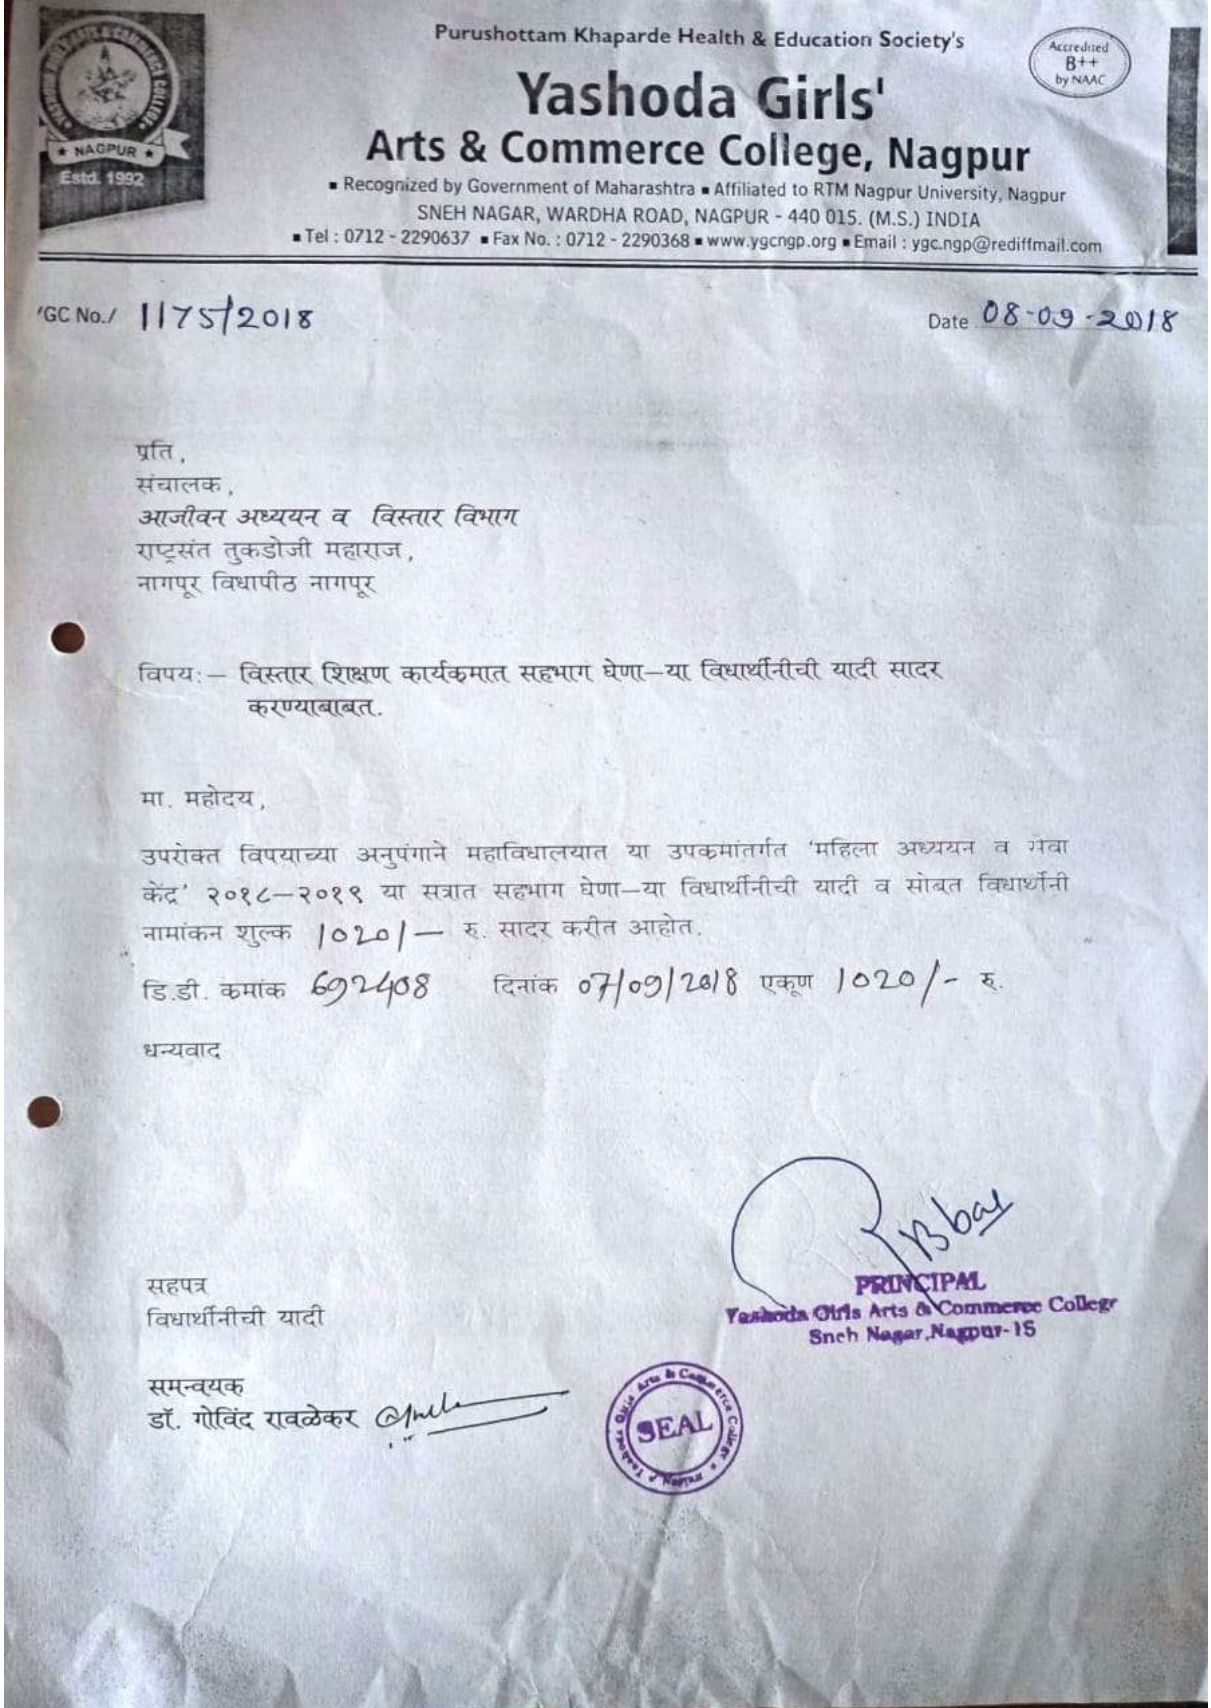 Purushottam Khaparde Health & Education Society's
Accredited
B++
by NAAC
Yashoda Girls'
Arts & Commerce College, Nagpur
★ NAGPUR ★
Estd. 1992
▪ Recognized by Government of Maharashtra ▪ Affiliated to RTM Nagpur University, Nagpur
SNEH NAGAR, WARDHA ROAD, NAGPUR - 440 015. (M.S.) INDIA
▪ Tel : 0712 - 2290637 ▪ Fax No. : 0712 - 2290368 ▪ www.ygcngp.org ▪ Email : ygc.ngp@rediffmail.com
YGC No./ 1175/2018
Date 08-09-2018
प्रति,
संचालक,
आजीवन अध्ययन व विस्तार विभाग
राष्ट्रसंत तुकडोजी महाराज,
नागपूर विधापीठ नागपूर
विपय:– विस्तार शिक्षण कार्यकमात सहभाग घेणा–या विधार्थीनीची यादी सादर
करण्याबाबत.
मा. महोदय,
उपरोक्त विपयाच्या अनुपंगाने महाविधालयात या उपकमांतर्गत 'महिला अध्ययन व सेवा
केंद्र' २०१८–२०१९ या सत्रात सहभाग घेणा–या विधार्थीनीची यादी व सोबत विधार्थीनी
नामांकन शुल्क 1020/– रु. सादर करीत आहोत.
डि.डी. कमांक 692408 दिनांक 07/09/2018 एकूण 1020/- रु.
धन्यवाद
PRINCIPAL
Yashoda Girls Arts & Commerce College
Sneh Nagar, Nagpur-15
सहपत्र
विधार्थीनीची यादी
समन्वयक
डॉ. गोविंद रावळेकर
SEAL